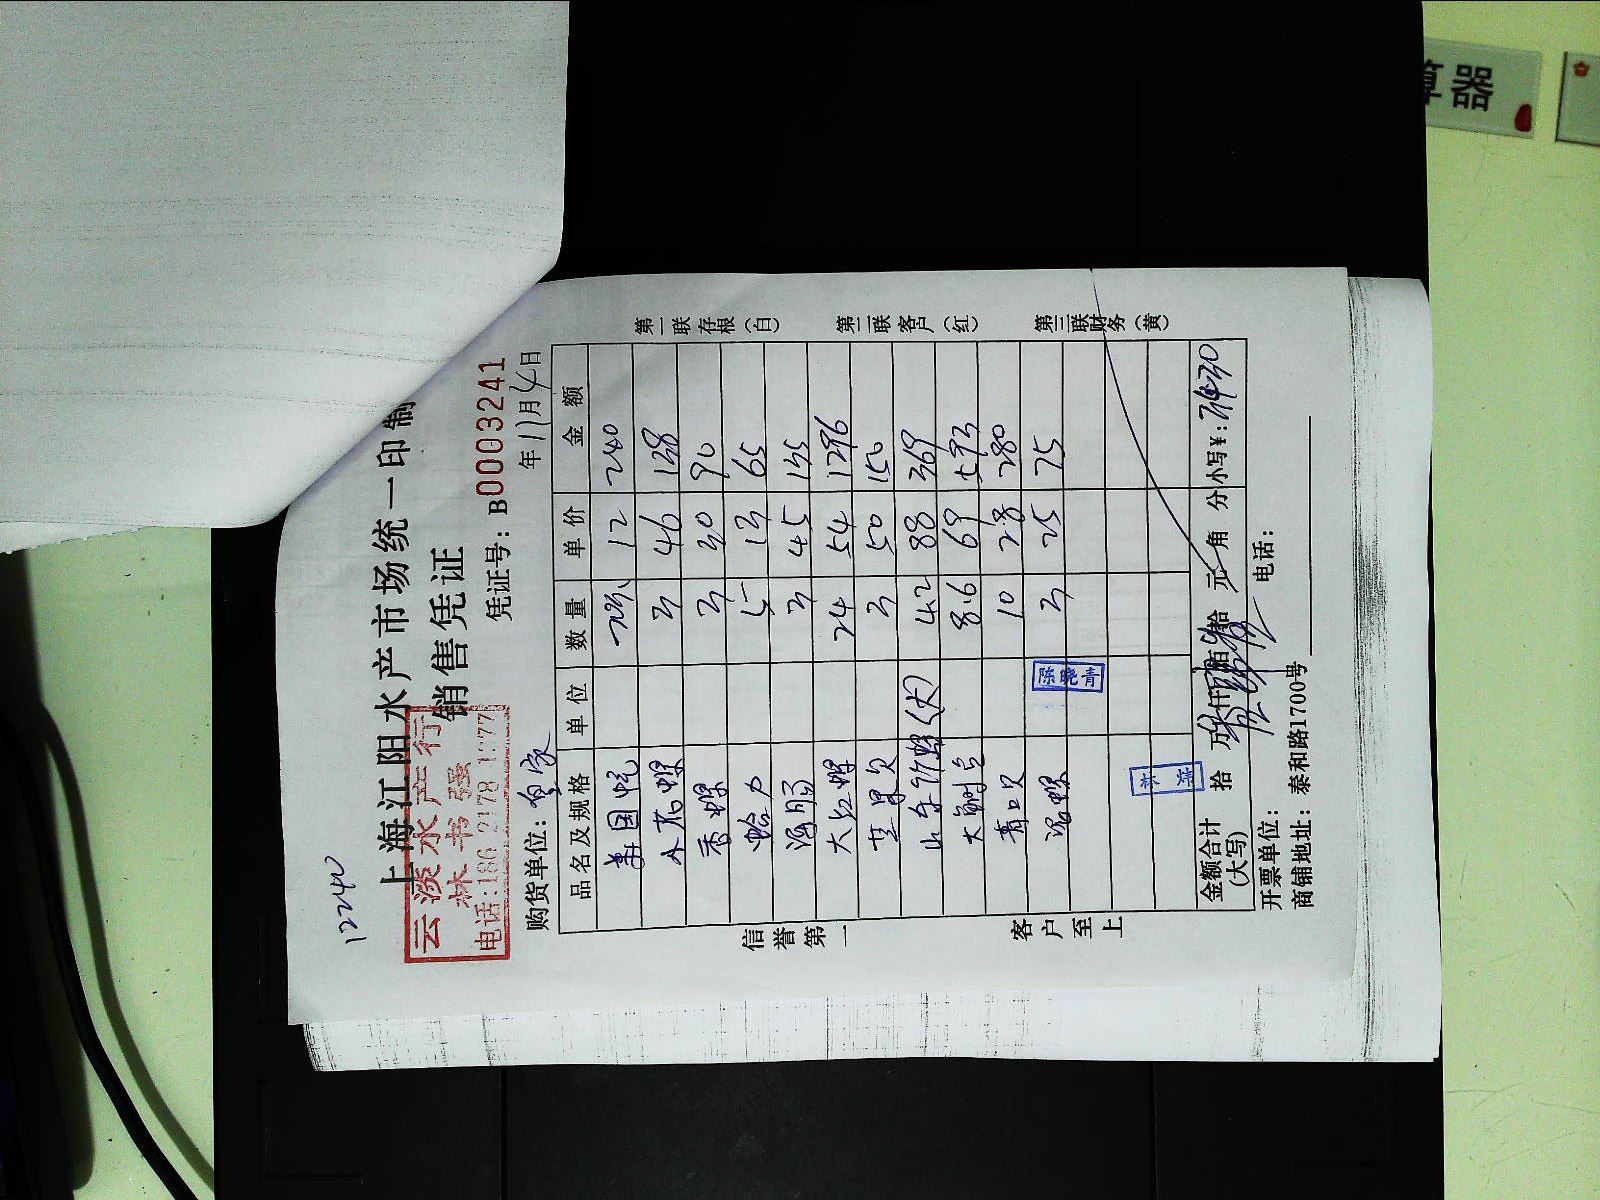 算器
12240
上海江阳水产市场统一印制
销售凭证
云淡水产行
林书强
电话:186 2178 1677
凭证号:B0003241
购货单位:
年11月4日
品名及规格 单位 数量 单价 金额
美国蚬 12 240
水花螺 3 46 138
香螺 3 30 90
蛤 5 13 65
海肠 3 45 135
大红螺 24 54 1296
芒果贝 3 50 150
山东 (大) 4.2 88 369
大 8.6 69 593
青口贝 10 28 280
泥螺 3 25 75
陈晓青
金额合计
(大写)
拾 万 仟 佰 拾 元 角 分 小写¥:
开票单位:
电话:
商铺地址:泰和路1700号
信誉第一
客户至上
第一联存根(白)
第二联客户(红)
第三联财务(黄)